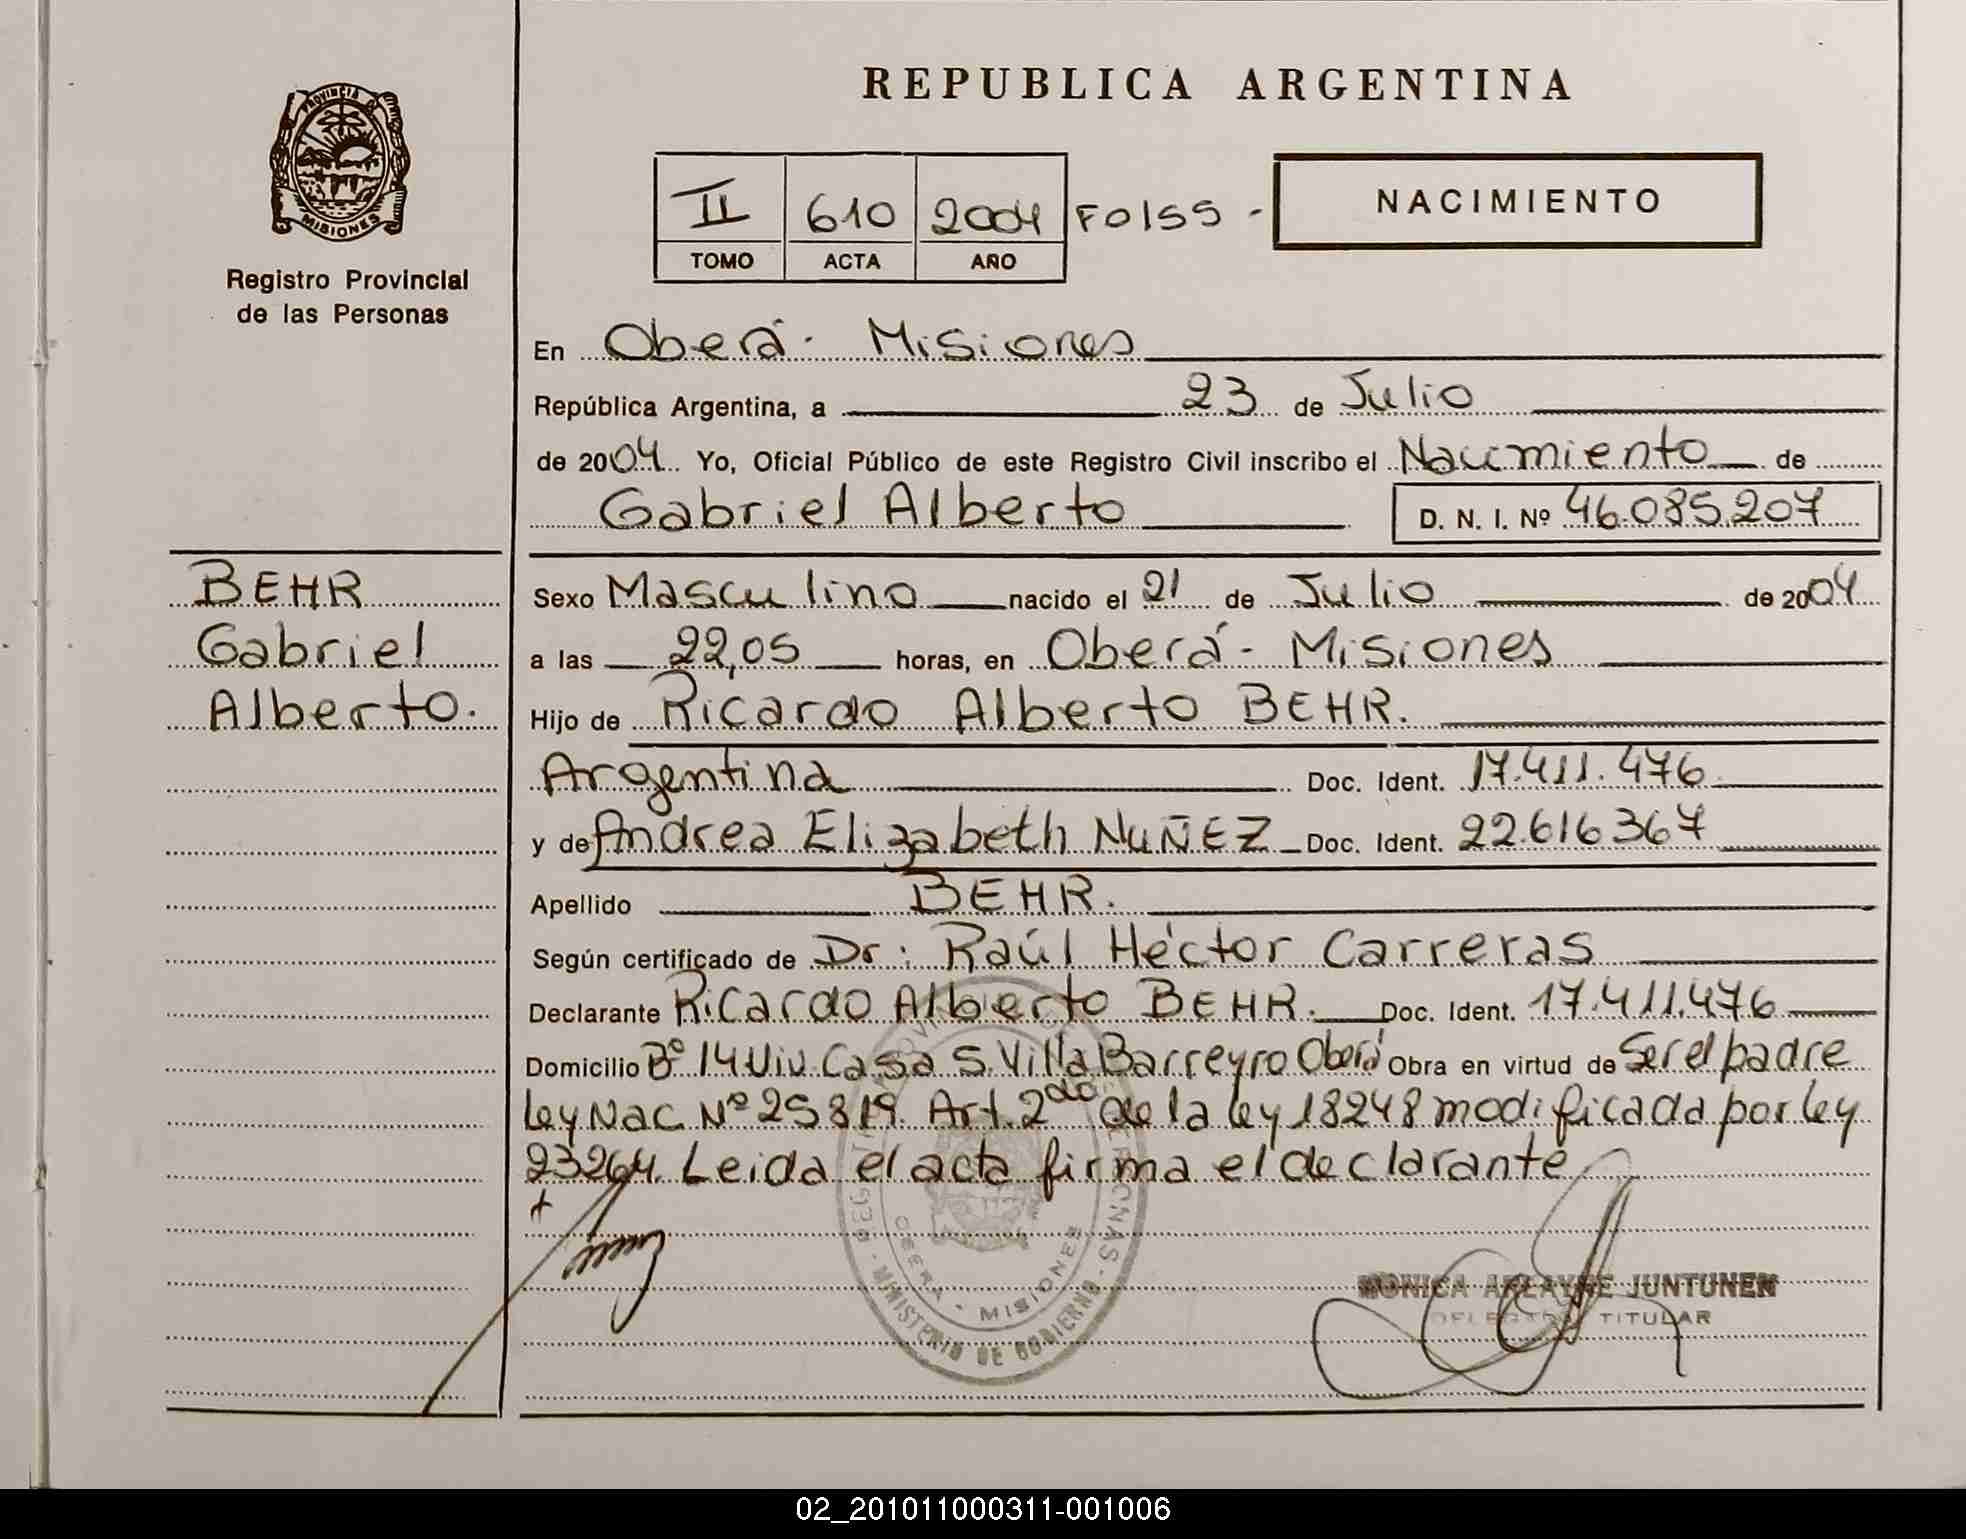 PROVINCIA DE
MISIONES
Registro Provincial
de las Personas
BEHR
Gabriel
Alberto.
REPUBLICA ARGENTINA
II 610 2004 FO155 -
TOMO ACTA AÑO
NACIMIENTO
En Oberá - Misiones
República Argentina, a 23 de Julio
de 2004 Yo, Oficial Público de este Registro Civil inscribo el Nacimiento de
Gabriel Alberto D. N. I. Nº 46.085.207
Sexo Masculino nacido el 21 de Julio de 2004
a las 22,05 horas, en Oberá - Misiones
Hijo de Ricardo Alberto BEHR.
Argentina Doc. Ident. 17.411.476
y de Andrea Elizabeth NUÑEZ Doc. Ident. 22.616.367
Apellido BEHR.
Según certificado de Dr: Raúl Héctor Carreras
Declarante Ricardo Alberto BEHR. Doc. Ident. 17.411.476
Domicilio Bº 14 Viv. Casa 5. Villa Barreyro Oberá Obra en virtud de Ser el padre
Ley Nac. Nº 25819. Art. 2do de la ley 18248 modificada por ley
23264. Leida el acta firma el declarante
MONICA ARLAYNE JUNTUNEN
DELEGADA TITULAR
OBERA - MISIONES
MINISTERIO DE GOBIERNO
02_201011000311-001006